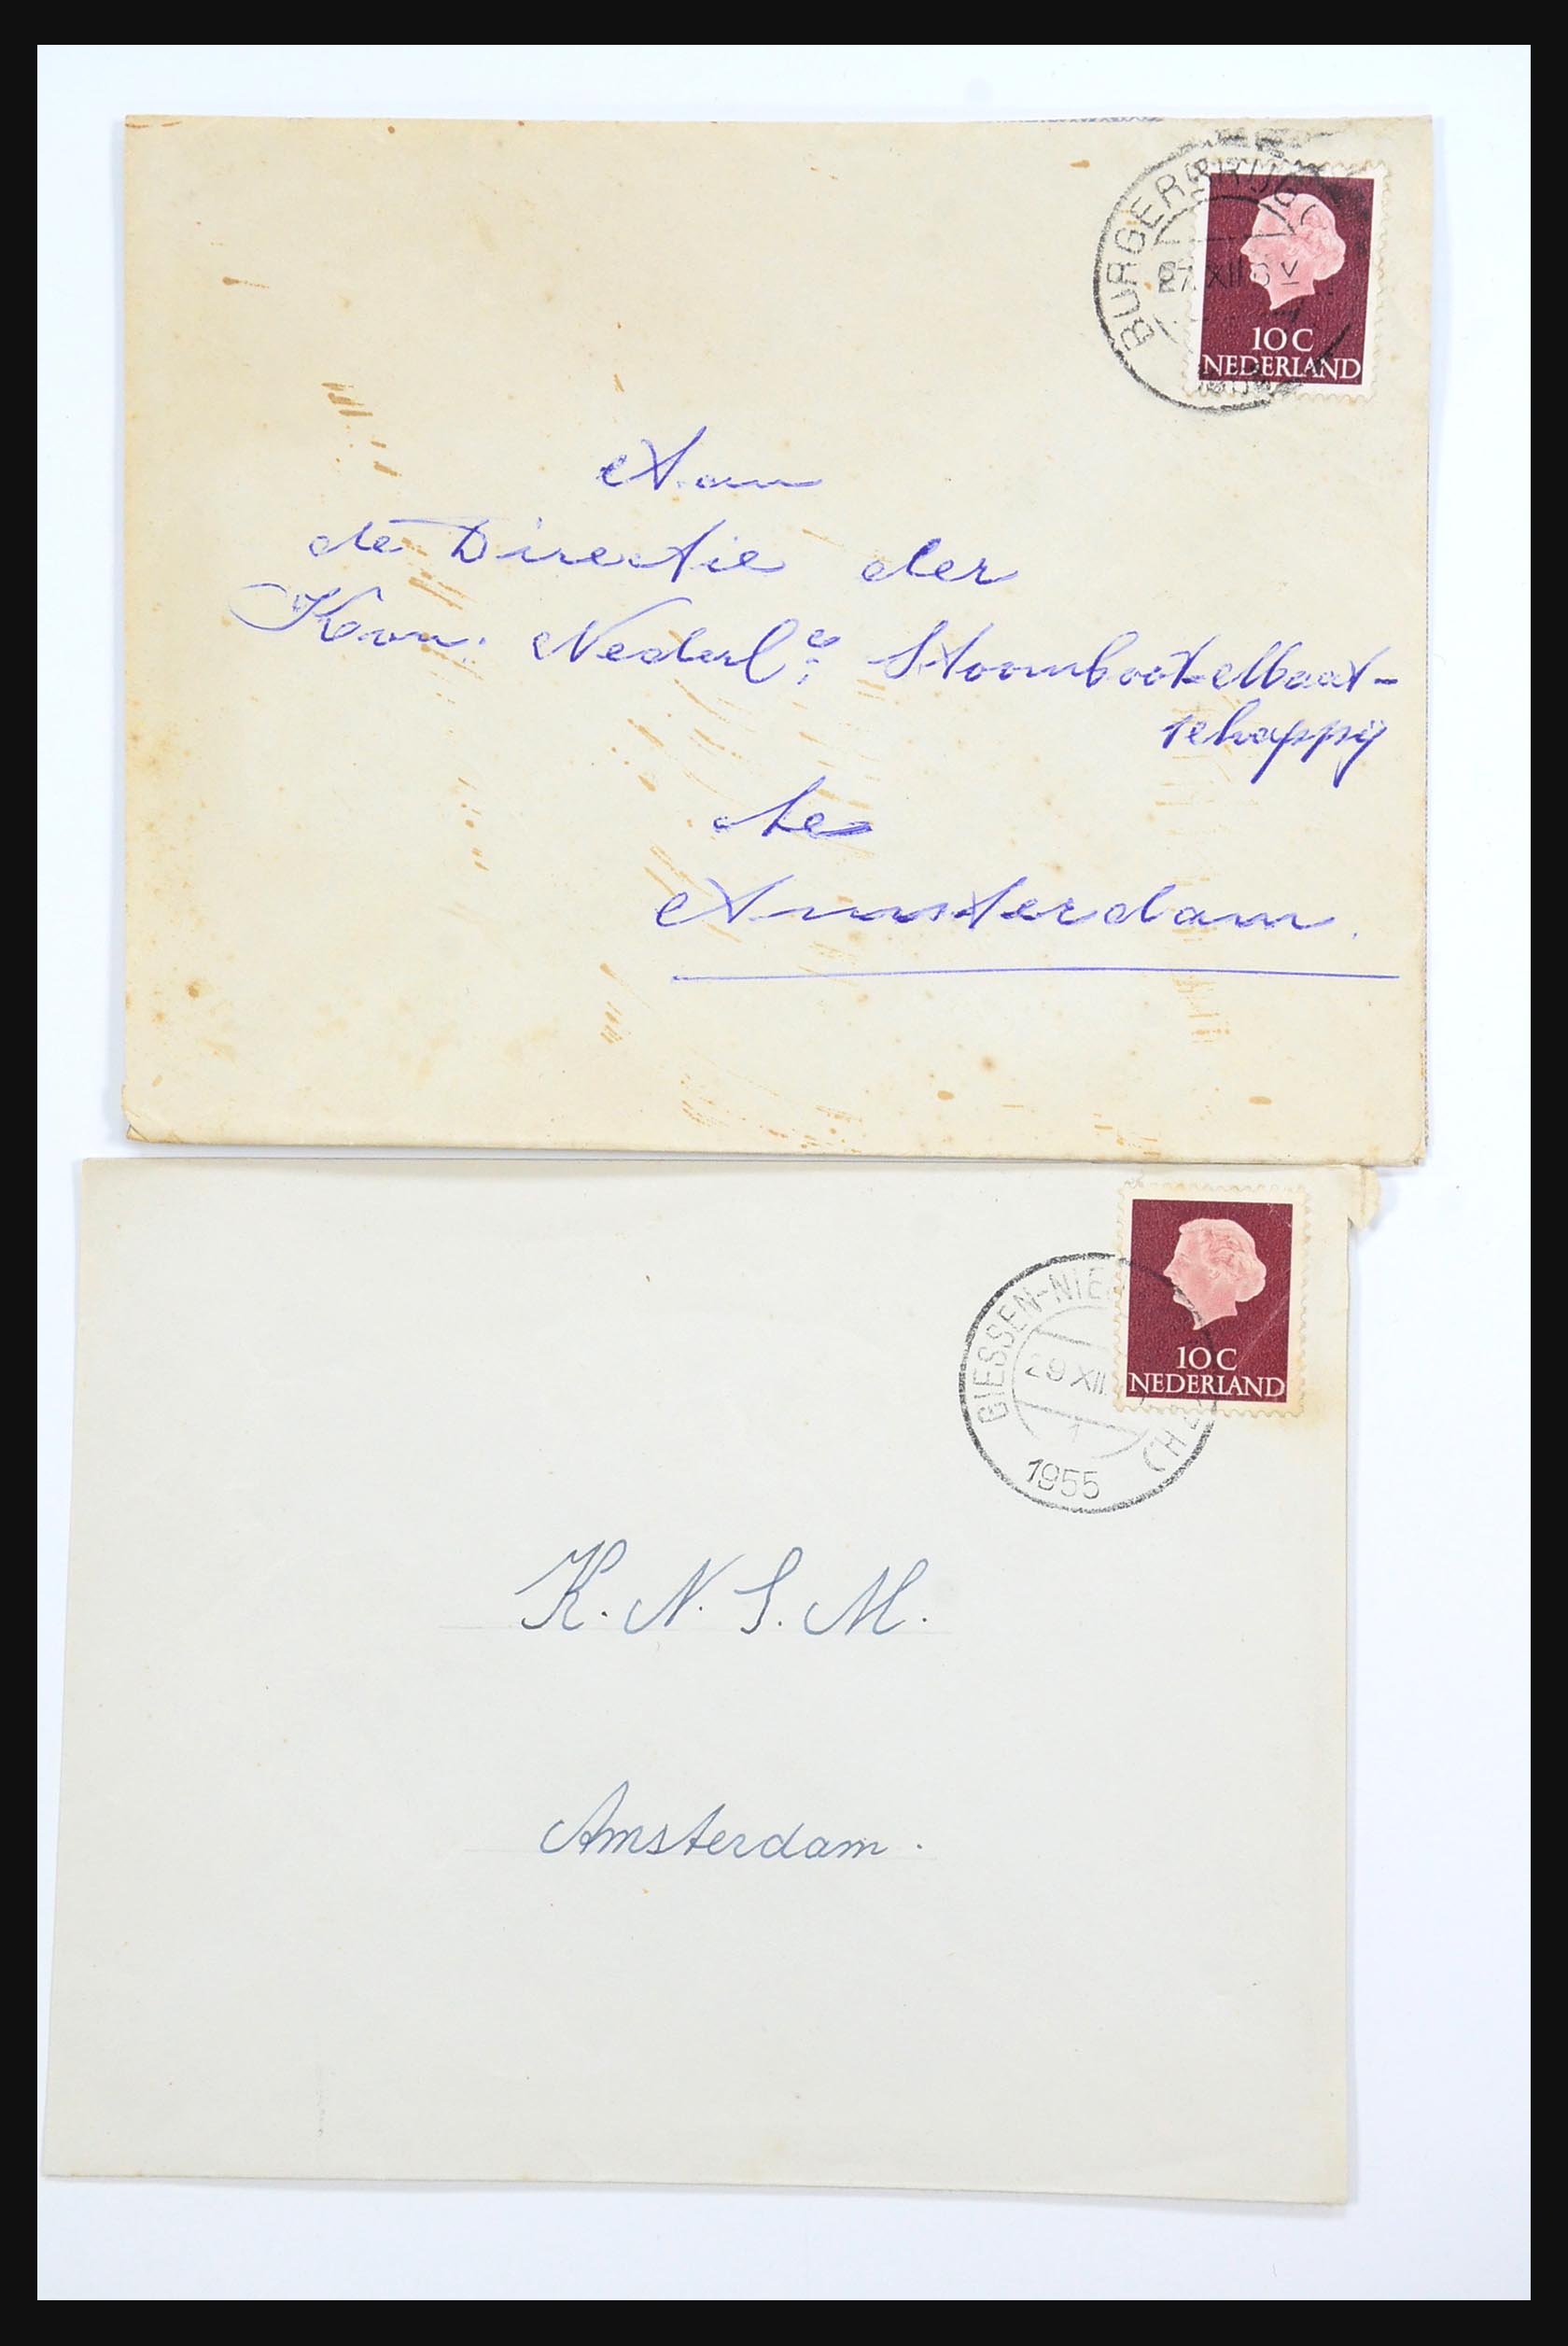 BURGERBRUG
27.XII
10 C
NEDERLAND
Aan
de Directie der
Kon: Nederl:e Stoomboot-Maat-
schappy
te
Amsterdam.
GIESSEN-NIE
29 XII
1
1955
(Z.H.)
10 C
NEDERLAND
K. N. S. M.
Amsterdam.